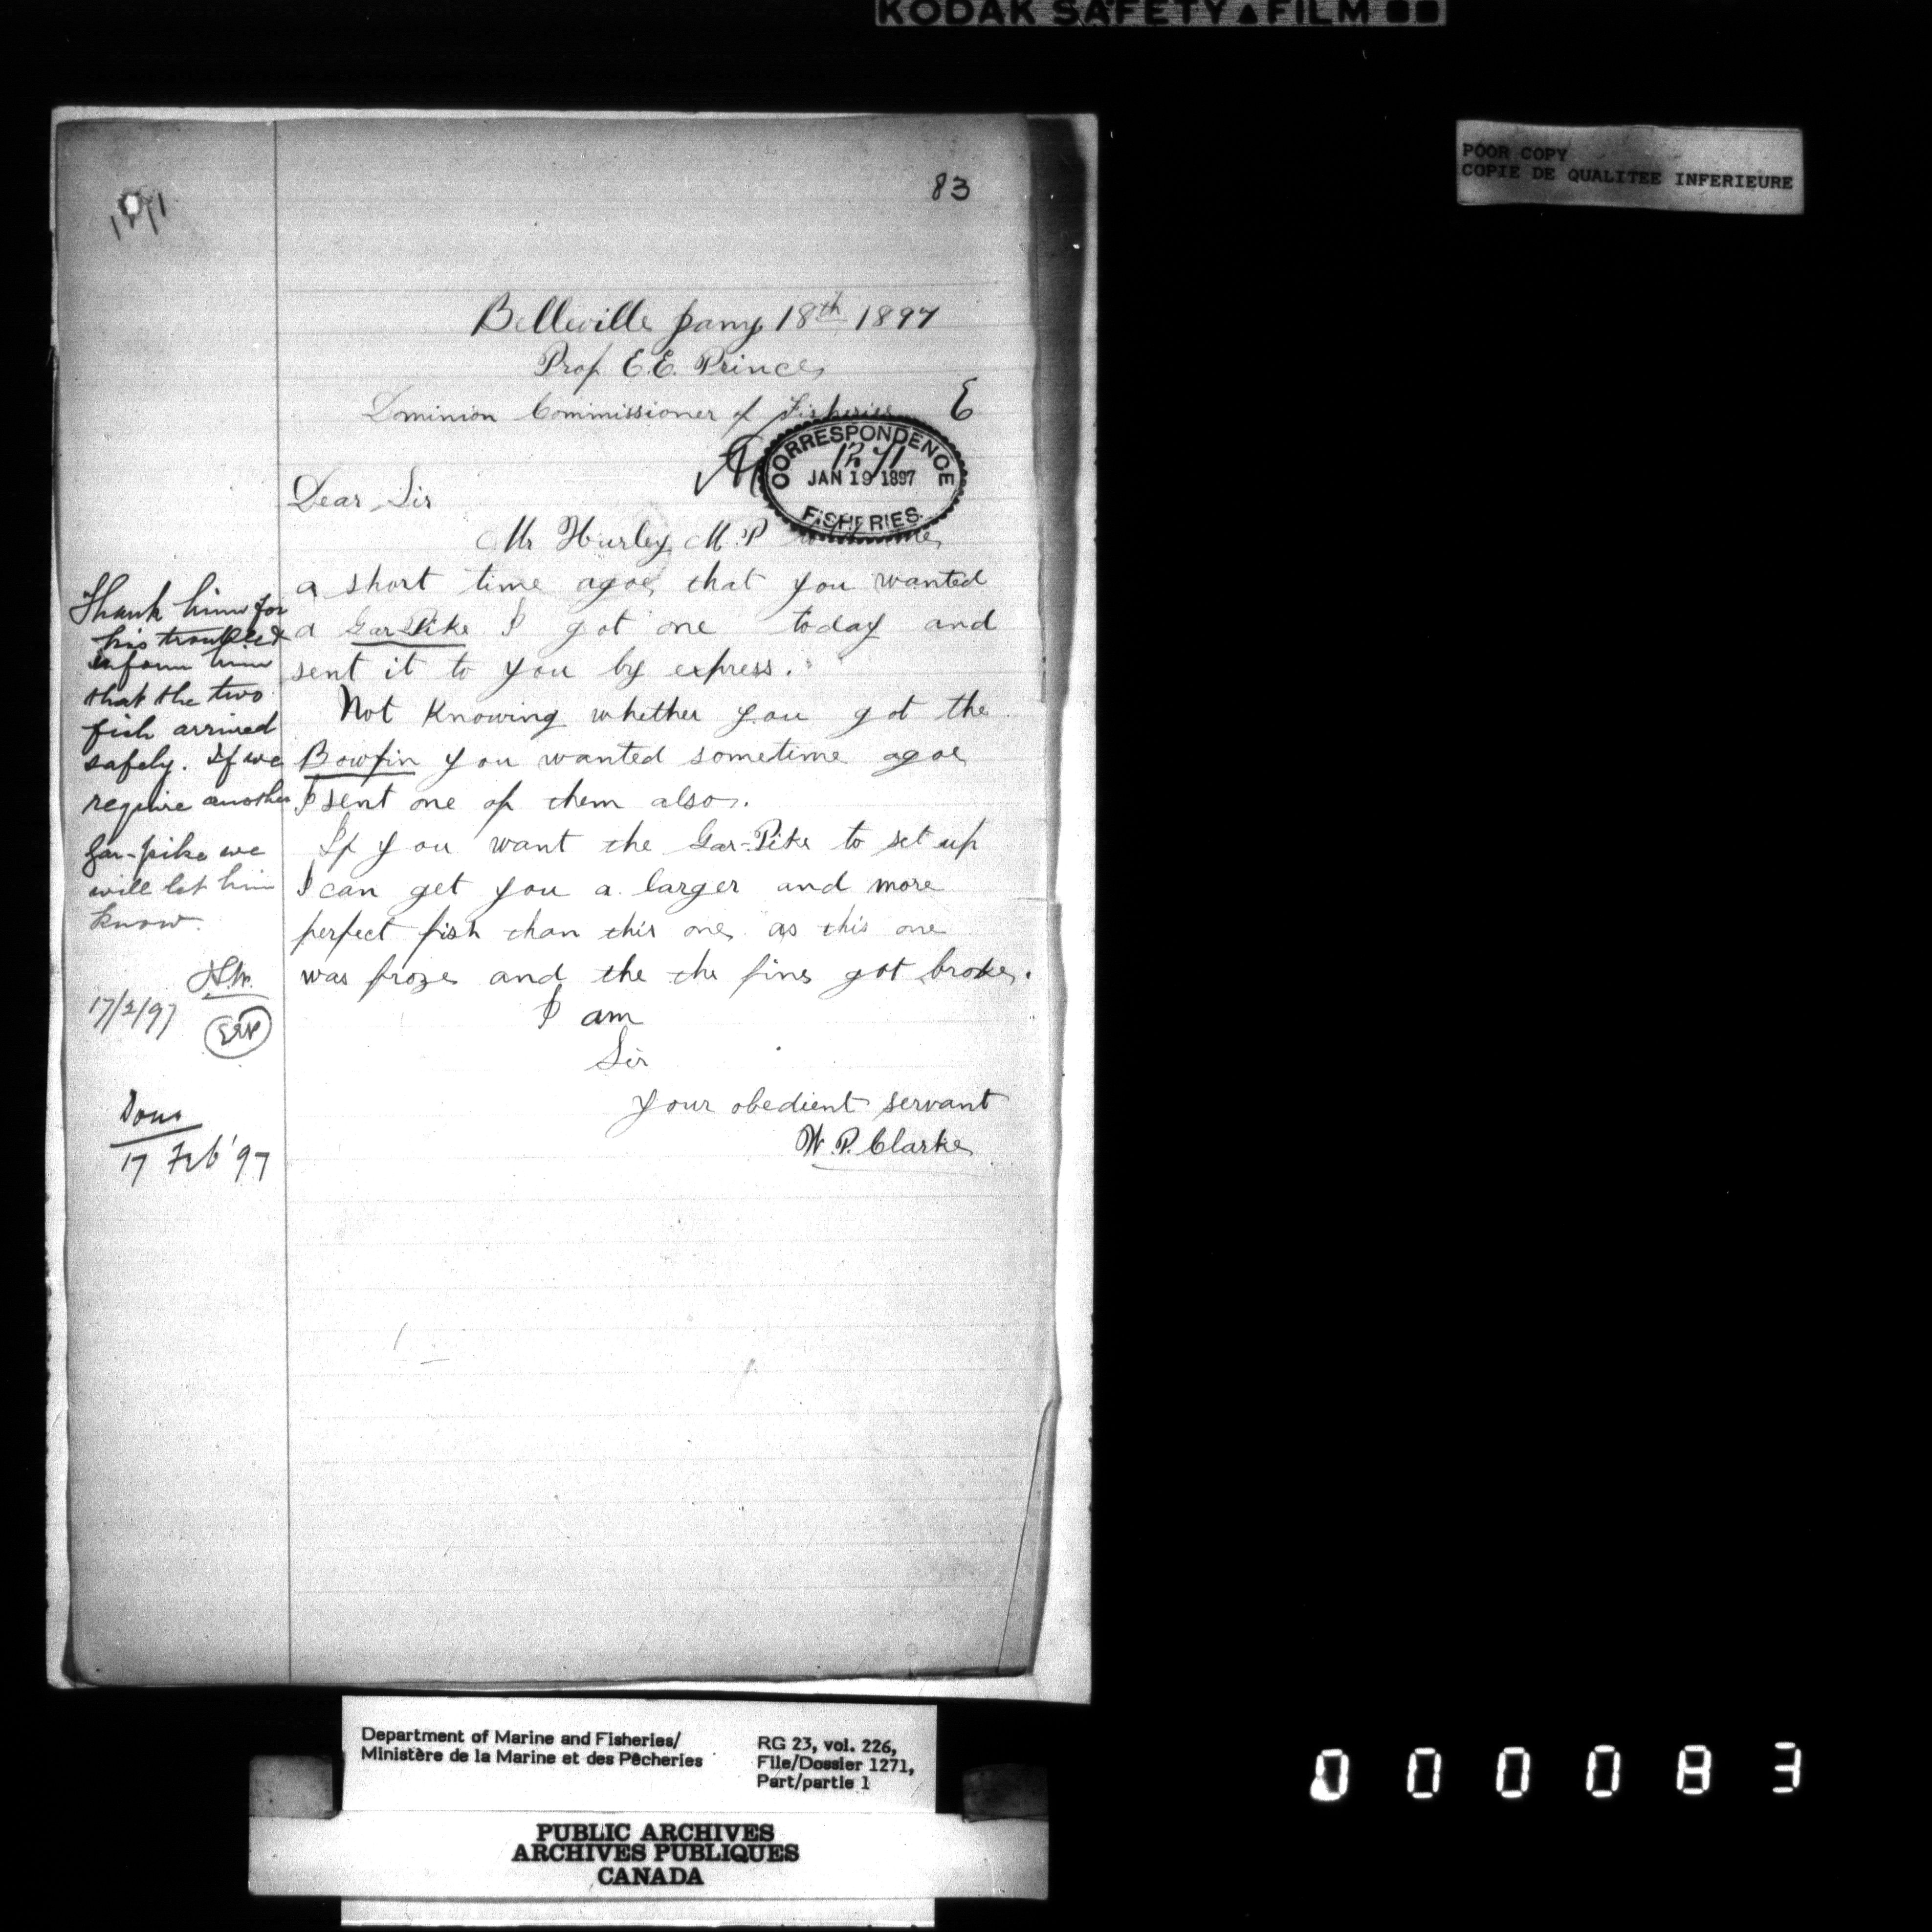 KODAK SAFETY FILM
POOR COPY
COPIE DE QUALITEE INFERIEURE
83
1271
Belleville Jany 18th 1897
Prof. E.E. Prince
Dominion Commissioner of Fisheries
E
CORRESPONDENCE
1271
JAN 19 1897
FISHERIES.
Dear Sir
Mr Hurley M.P me
a short time agoe that you wanted
a Gar Pike I got one today and
sent it to you by express.
Not Knowing whether you got the
Bowfin you wanted sometime agoe
I sent one of them also.
If you want the Gar-Pike to set up
I can get you a larger and more
perfect fish than this one as this one
was froze and the the fins got broke.
I am
Sir
Your obedient servant
W.P. Clarke
Thank him for
his trouble &
inform him
that the two
fish arrived
safely. If we
require another
gar-pike we
will let him
know.
17/2/97
EEP
Done
17 Feb '97
Department of Marine and Fisheries/
Ministère de la Marine et des Pêcheries
RG 23, vol. 226,
File/Dossier 1271,
Part/partie 1
PUBLIC ARCHIVES
ARCHIVES PUBLIQUES
CANADA
000083